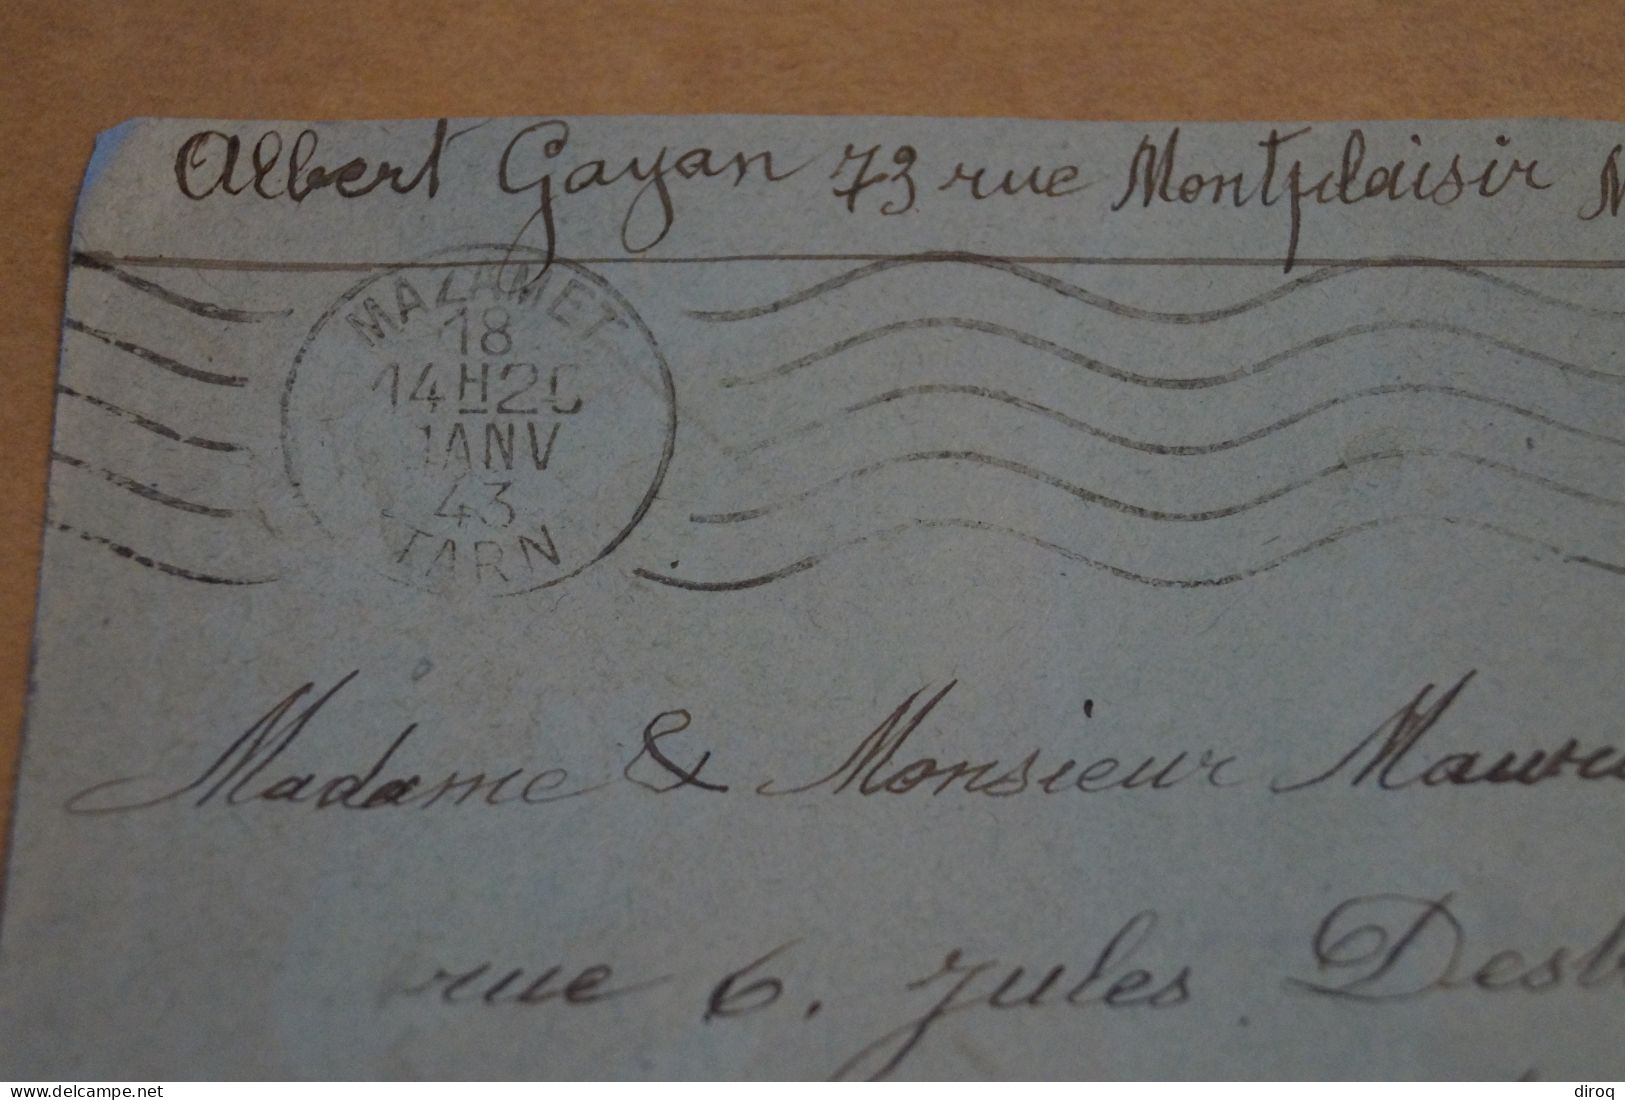 Albert Gayan 73 rue Montplaisir
MAZAMET
18
14H20
JANV
43
TARN
Madame & Monsieur
rue 6. Jules
www.delcampe.net
diroq